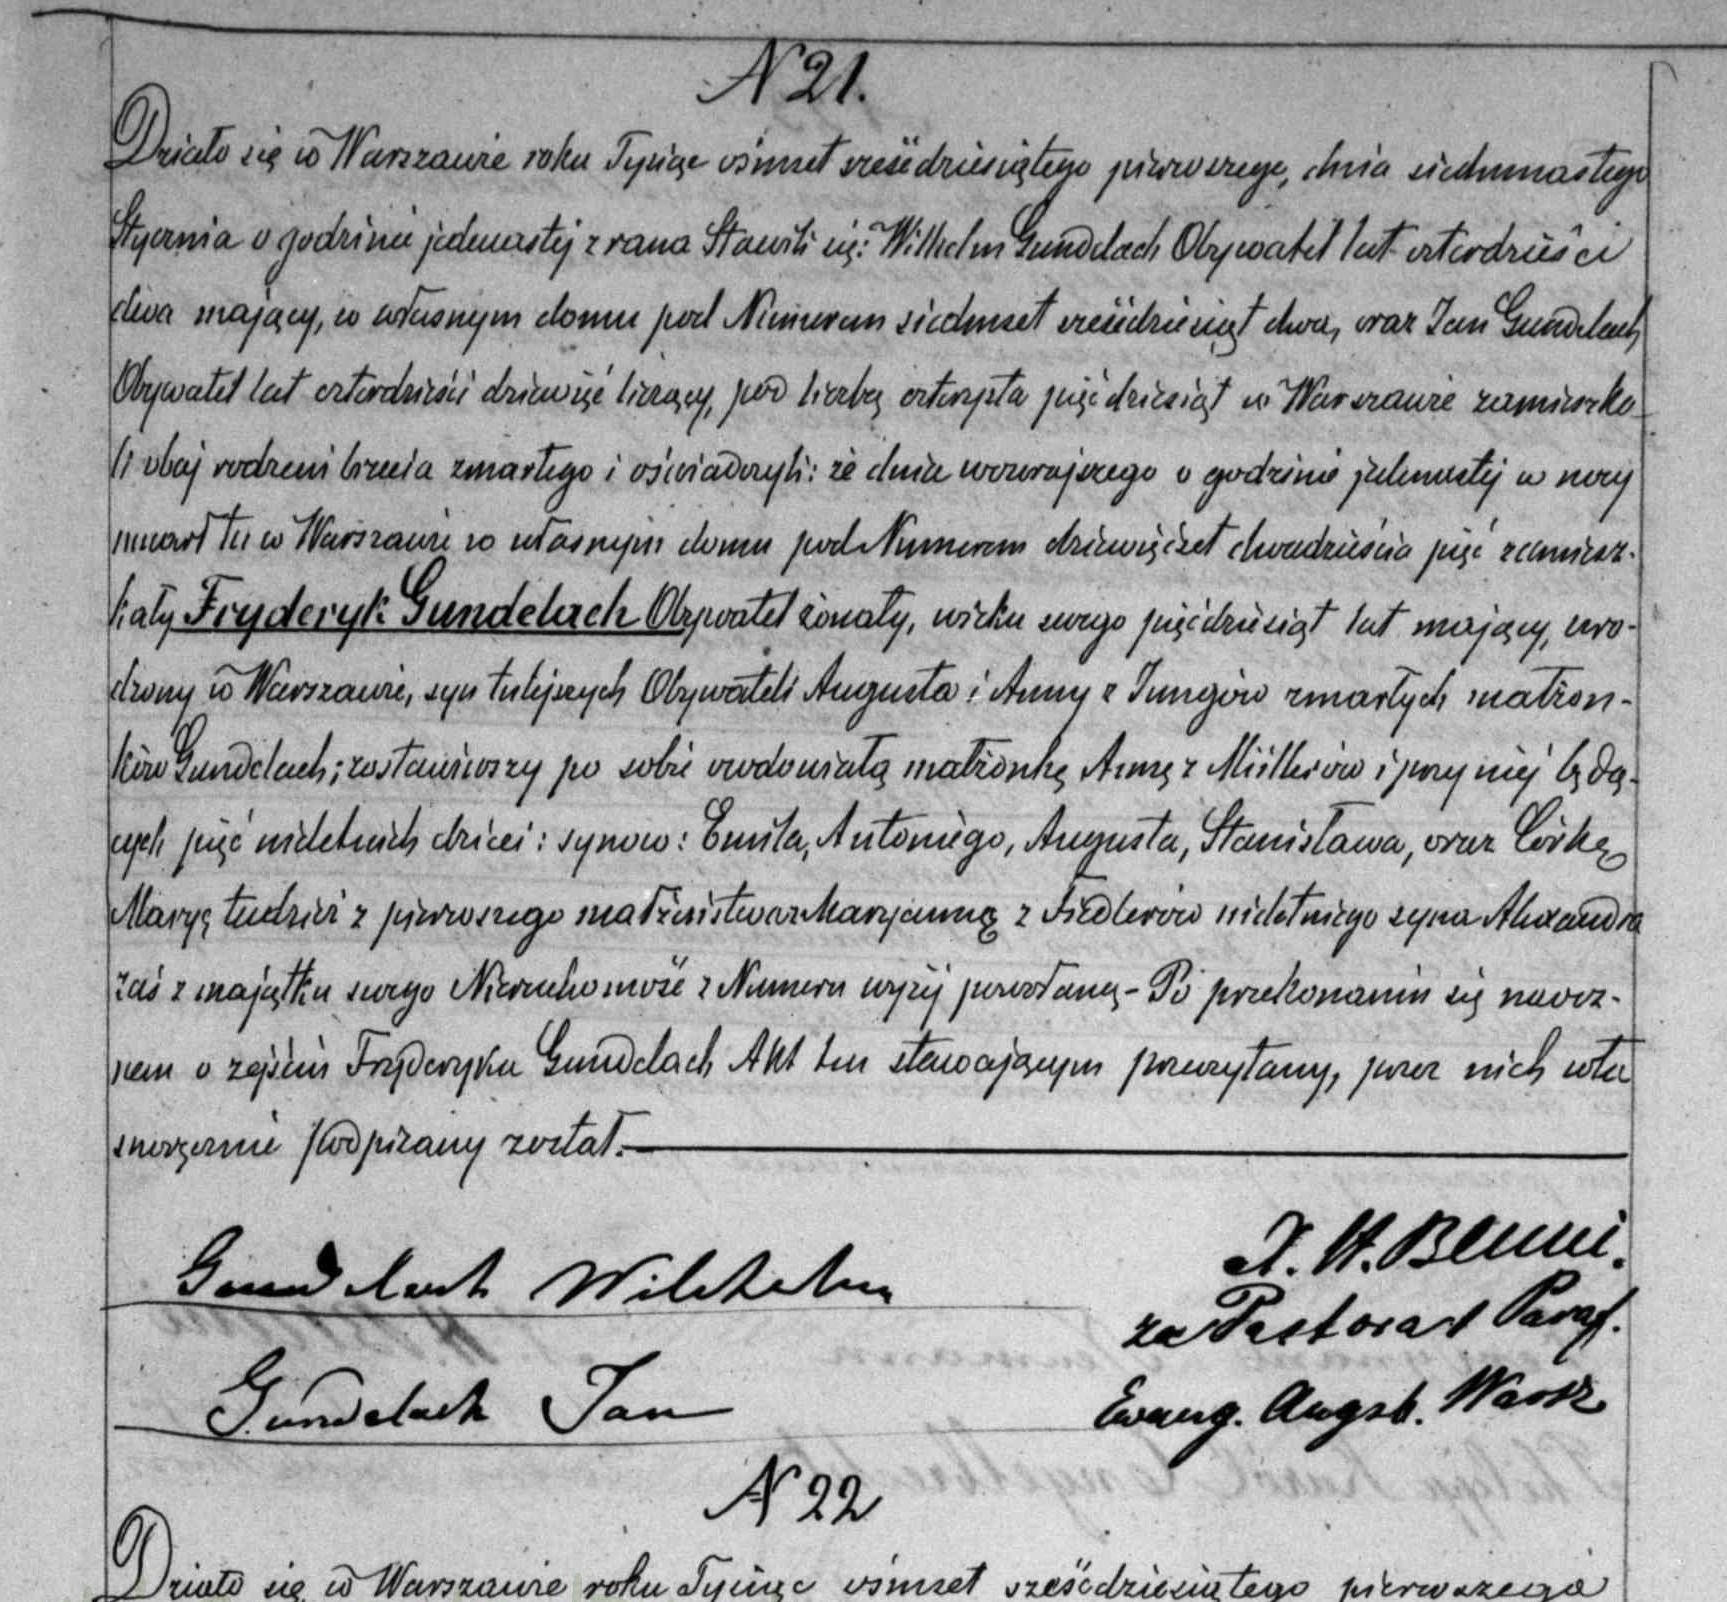 N 21.
Działo się w Warszawie roku Tysiąc ośmset sześćdziesiątego pierwszego, dnia siedmnastego
Stycznia o godzinie jedenastej z rana Stawili się: Wilhelm Gundelach Obywatel lat czterdzieści
dwa mający, w własnym domu pod Numerem siedmset sześćdziesiąt dwa, oraz Jan Gundelach
Obywatel lat czterdzieści dziewięć liczący, pod liczbą czterysta pięćdziesiąt w Warszawie zamieszka-
li obaj rodzeni bracia zmarłego i oświadczyli: że dnia wczorajszego o godzinie jedenastej w nocy
umarł tu w Warszawie w własnym domu pod Numerem dziewięćset dwadzieścia pięć zamiesz-
kały Fryderyk Gundelach Obywatel żonaty, wieku swego pięćdziesiąt lat mający, uro-
dzony w Warszawie, syn tutejszych Obywateli Augusta i Anny z Jungów zmarłych małżon-
ków Gundelach; zostawiwszy po sobie owdowiałą małżonkę Annę z Müllerów i przy niej będą-
cych pięć nieletnich dzieci: synow: Emila, Antoniego, Augusta, Stanisława, oraz Córkę
Maryę tudzież z pierwszego małżeństwa z Maryanną z Fiedlerów nieletniego syna Alexandra
zaś z majątku swego Nieruchomość z Numeru wyżej powołaną - Po przekonaniu się naocz-
nem o zejściu Fryderyka Gundelach Akt ten stawającym przeczytany, przez nich wła
snoręcznie podpisany został.
Gundelach Wilchelm
X. H. Benni.
za Pastora Paraf.
Gundelach Jan
Ewang. Augsb. Warsz
N 22
Działo się w Warszawie roku Tysiąc ośmset sześćdziesiątego pierwszego